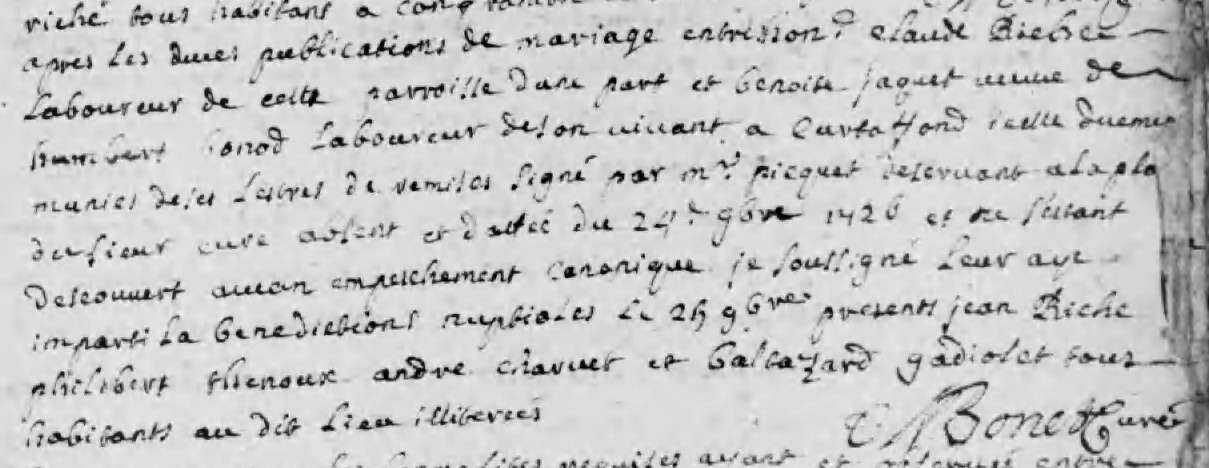 riché tous habitans a
apres les dues publications de mariage entre honn. claude Riche
Laboureur de cette parroisse d'une part et benoite jaquet veuve de
humbert bonod Laboureur de son vivant a Curtaffond icelle duemen
munies de ses Lettres de remises signé par mr. picquet deservant a la pla
du sieur curé absent et dattée du 24e 9bre 1726 et ne s'estant
descouvert aucun empeschement canonique je soussigné Leur aye
imparti la benedictions nuptiales Le 25 9bre presents jean Riche
philibert thenoux andre charvet et baltazard gadiolet tous
habitants au dit Lieu illiterées
Bonet Curé
requises ayant et